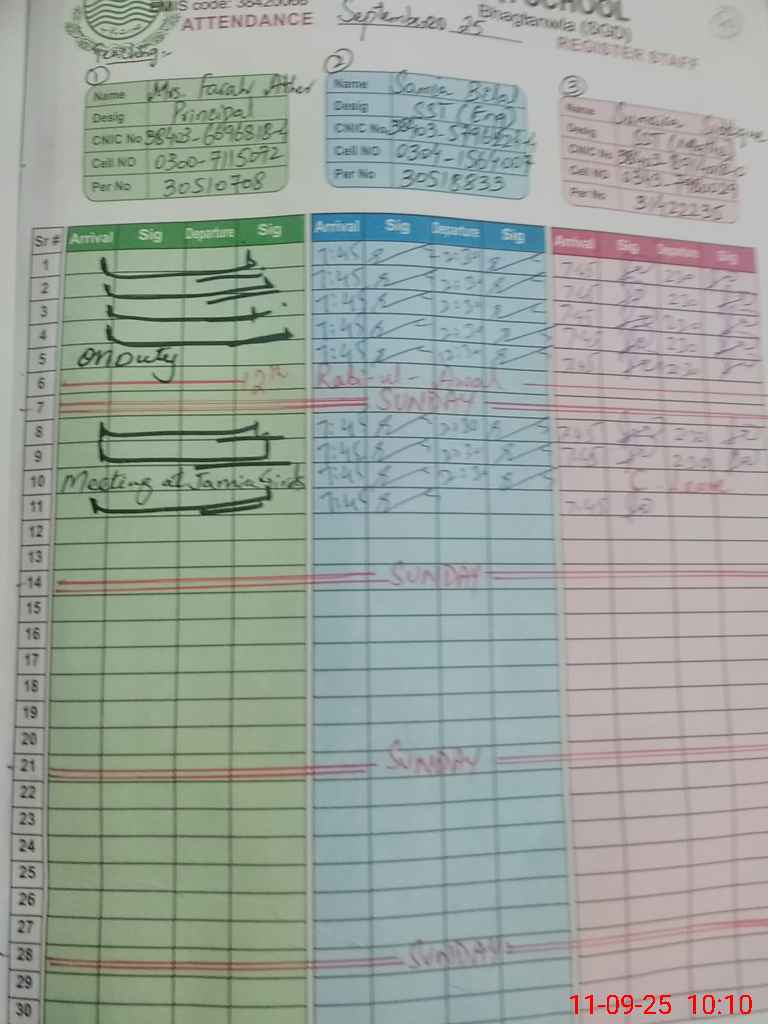 SCHOOL
EMIS code:
Bhagtanwla (SGD)
ATTENDANCE
September 25
REGISTER STAFF
Teaching:-
1
Name Mrs. Farah Ather
Desig Principal
CNIC No
Cell NO 0300-7115072
Per No 30510708
2
Name Samia Bilal
Desig SST (Eng)
CNIC No
Cell NO 0304-1564007
Per No 30518833
3
Name
Desig SST (Maths)
CNIC No
Cell NO
Per No 31422235
Sr # Arrival Sig Departure Sig Arrival Sig Departure Sig Arrival Sig Departure Sig
1 7:45 12:30 7:45 2:30
2 7:45 12:30 7:45 2:30
3 7:45 12:30 7:45 2:30
4 7:45 12:30 7:45 2:30
5 On Duty 7:45 12:30 7:45 2:30
6 12th Rabi-ul-Awal
7 SUNDAY
8 7:45 12:30 7:45 2:30
9 7:45 12:30 7:45 2:30
10 Meeting at Jamia Girls 7:45 12:30 C. Leave
11 7:45 7:45
12
13
14 SUNDAY
15
16
17
18
19
20
21 SUNDAY
22
23
24
25
26
27
28 SUNDAY
29
30
11-09-25 10:10